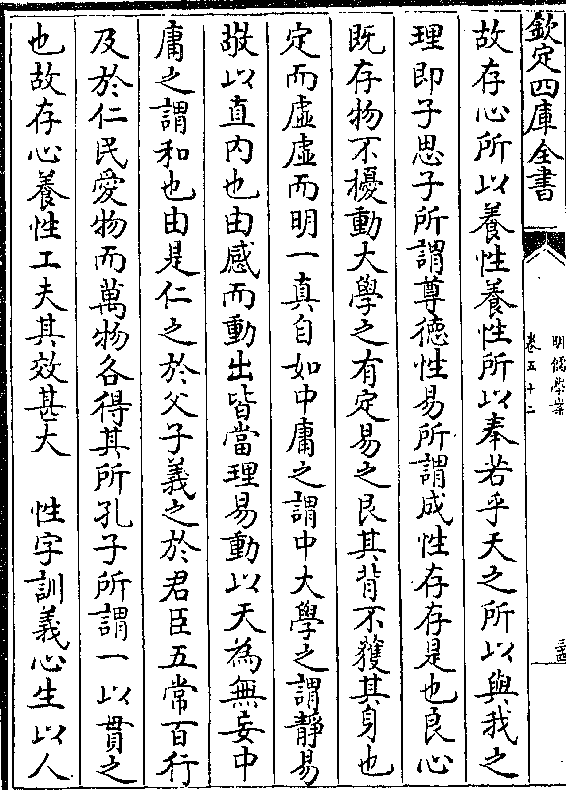 欽定四庫全書
明儒學案
卷五十二
故存心所以養性養性所以奉若乎天之所以與我之
理即子思子所謂尊德性易所謂成性存存是也良心
既存物不擾動大學之有定易之艮其背不獲其身也
定而虛虛而明一真自如中庸之謂中大學之謂靜易
敬以直内也由感而動出皆當理易動以天為無妄中
庸之謂和也由是仁之於父子義之於君臣五常百行
及於仁民愛物而萬物各得其所孔子所謂一以貫之
也故存心養性工夫其效甚大　性字訓義心生以人